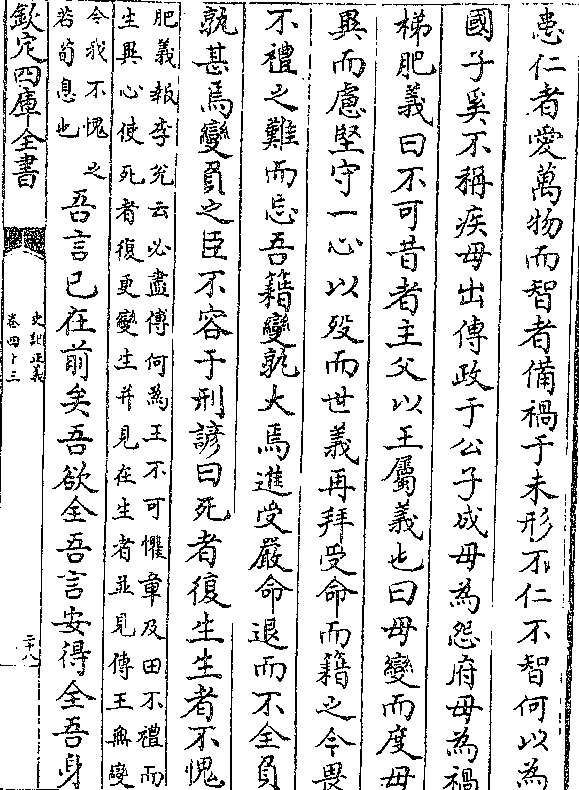 患仁者愛萬物而智者備禍于未形不仁不智何以為
國子奚不稱疾毋出傳政于公子成毋為怨府毋為禍
梯肥義曰不可昔者主父以王屬義也曰毋變而度毋
異而慮堅守一心以殁而世義再拜受命而籍之今畏
不禮之難而忘吾籍變孰大焉進受嚴命退而不全負
孰甚焉變負之臣不容于刑諺曰死者復生生者不愧
肥義報李兊云必盡傅何為王不可懼章及田不禮而
生異心使死者復更變生并見在生者並見傅王無變
令我不愧之
若荀息也
吾言已在前矣吾欲全吾言安得全吾身
欽定四庫全書
史記正義
卷四十三
二十八